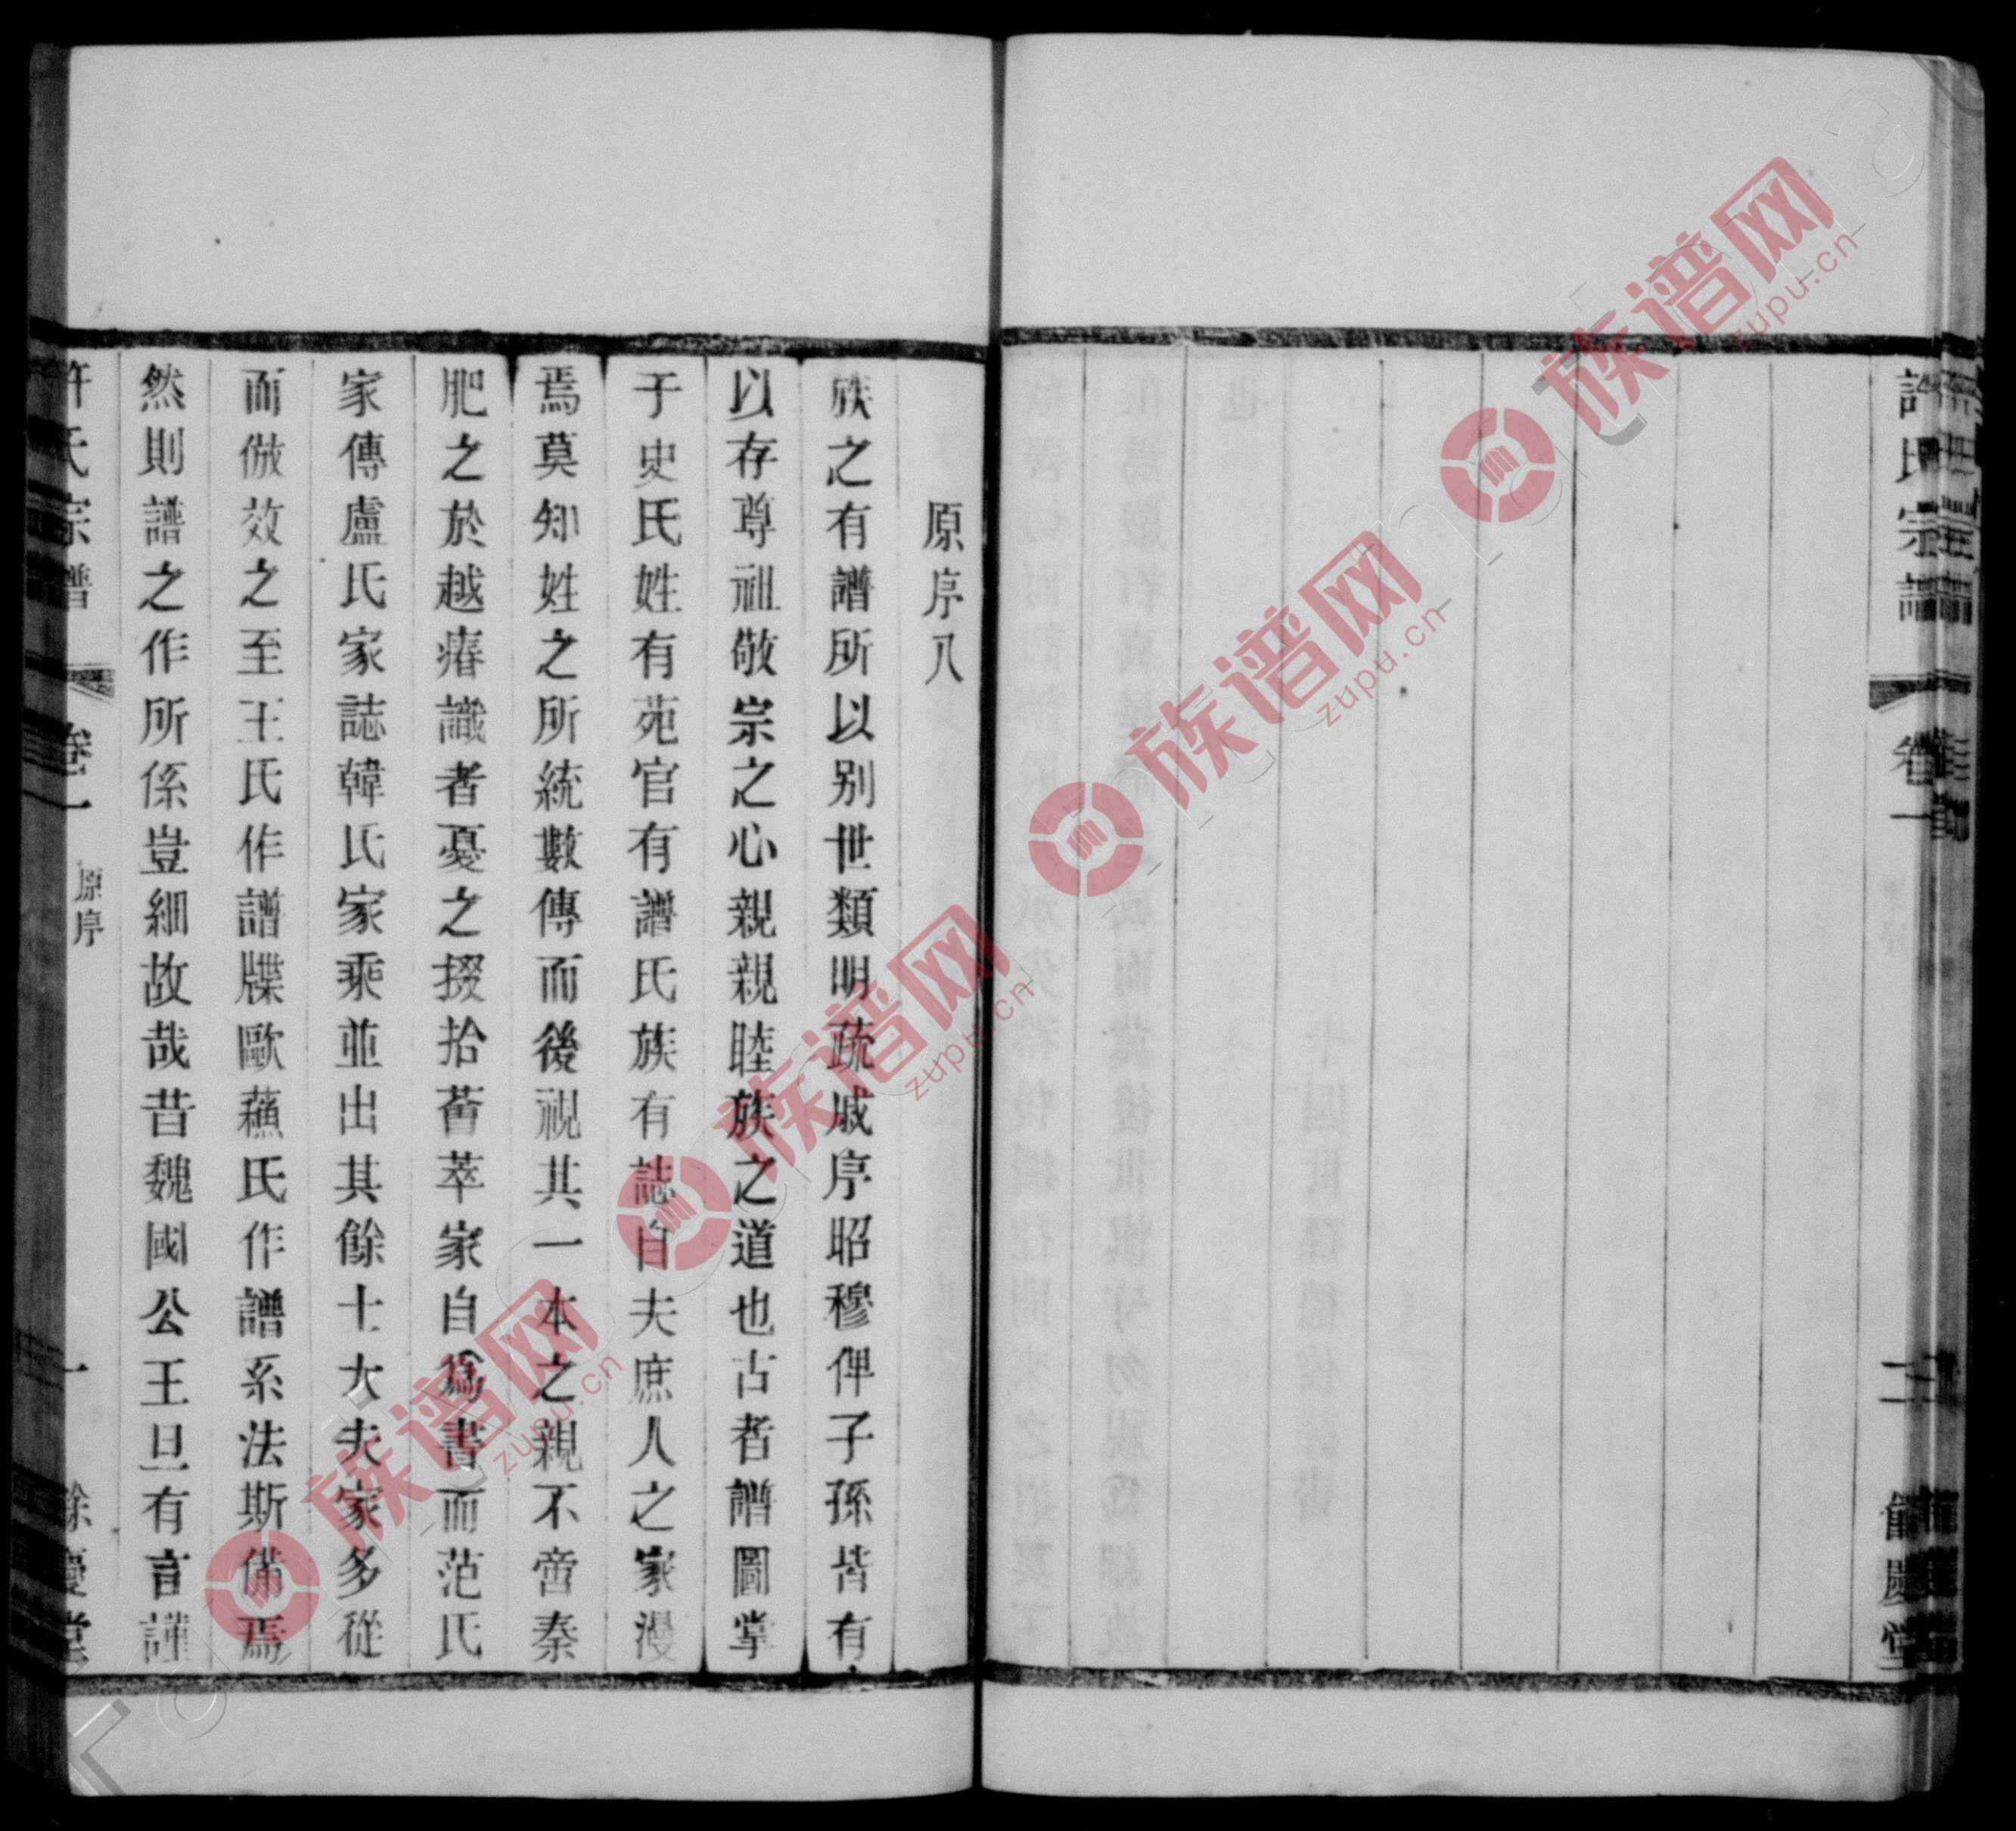 許氏宗譜 卷一 二 餘慶堂
原序八
族之有譜所以别世類明疏戚序昭穆俾子孫皆有
以存尊祖敬宗之心親親睦族之道也古者譜圖掌
于史氏姓有苑官有譜氏族有誌自夫庶人之家漫
焉莫知姓之所統數傳而後視其一本之親不啻秦
肥之於越瘠識者憂之掇拾薈萃家自爲書而范氏
家傳盧氏家誌韓氏家乘並出其餘士大夫家多從
而倣效之至王氏作譜牒歐蘓氏作譜系法斯備焉
然則譜之作所係豈細故哉昔魏國公王旦有言謹
許氏宗譜 卷一 原序 一 餘慶堂
族谱网
zupu.cn
族谱网
zupu.cn
族谱网
zupu.cn
族谱网
zupu.cn